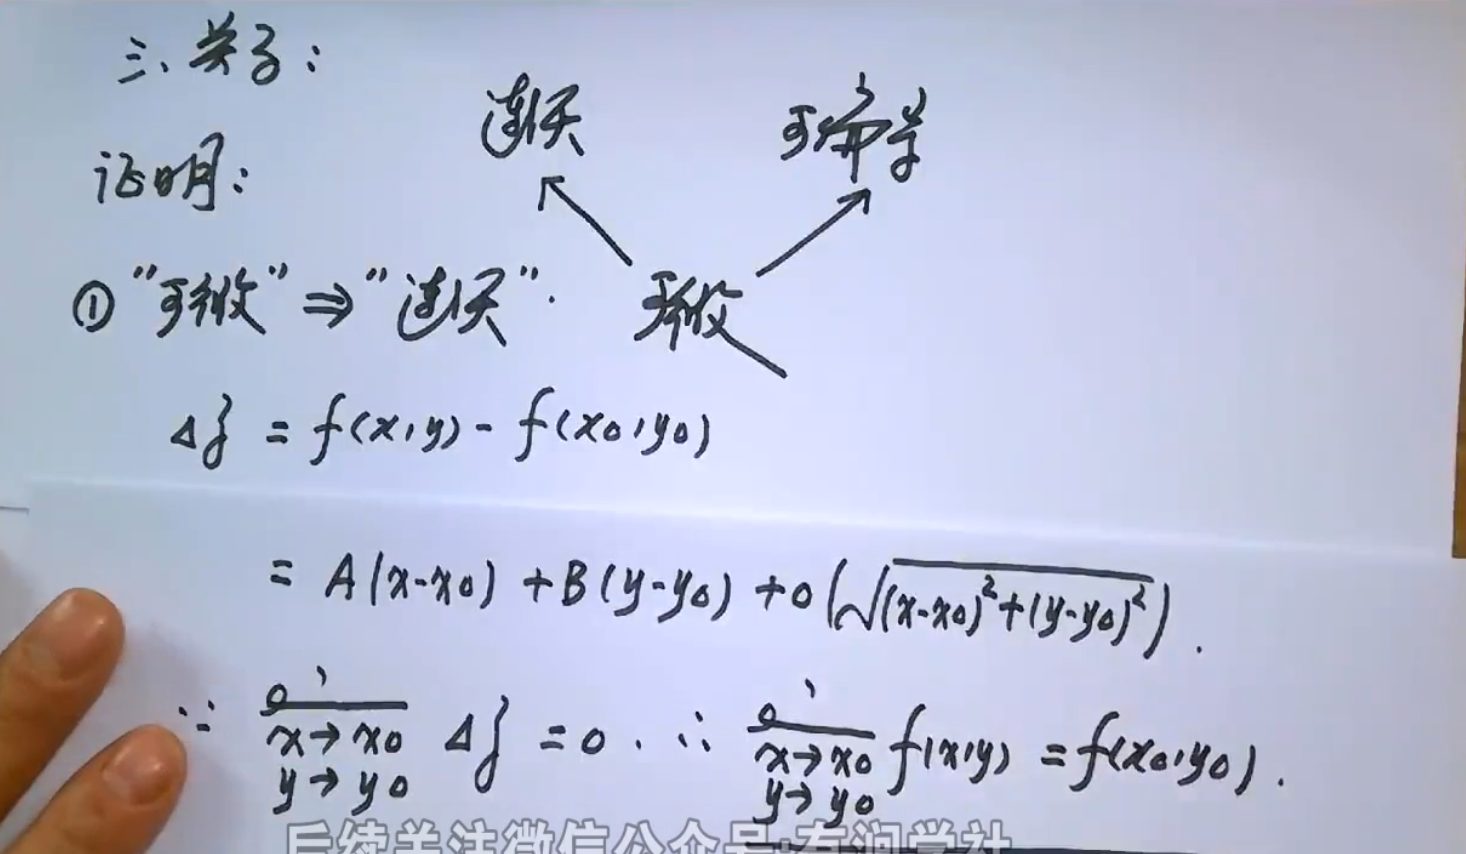 三、关系：
连续 可偏导
证明：
可微
① “可微” ⇒ “连续”.
Δz = f(x,y) - f(x0,y0)
= A(x-x0) + B(y-y0) + o(√(x-x0)²+(y-y0)²).
∵ lim x→x0 y→y0 Δz = 0. ∴ lim x→x0 y→y0 f(x,y) = f(x0,y0).
后续关注微信公众号:有涧学社